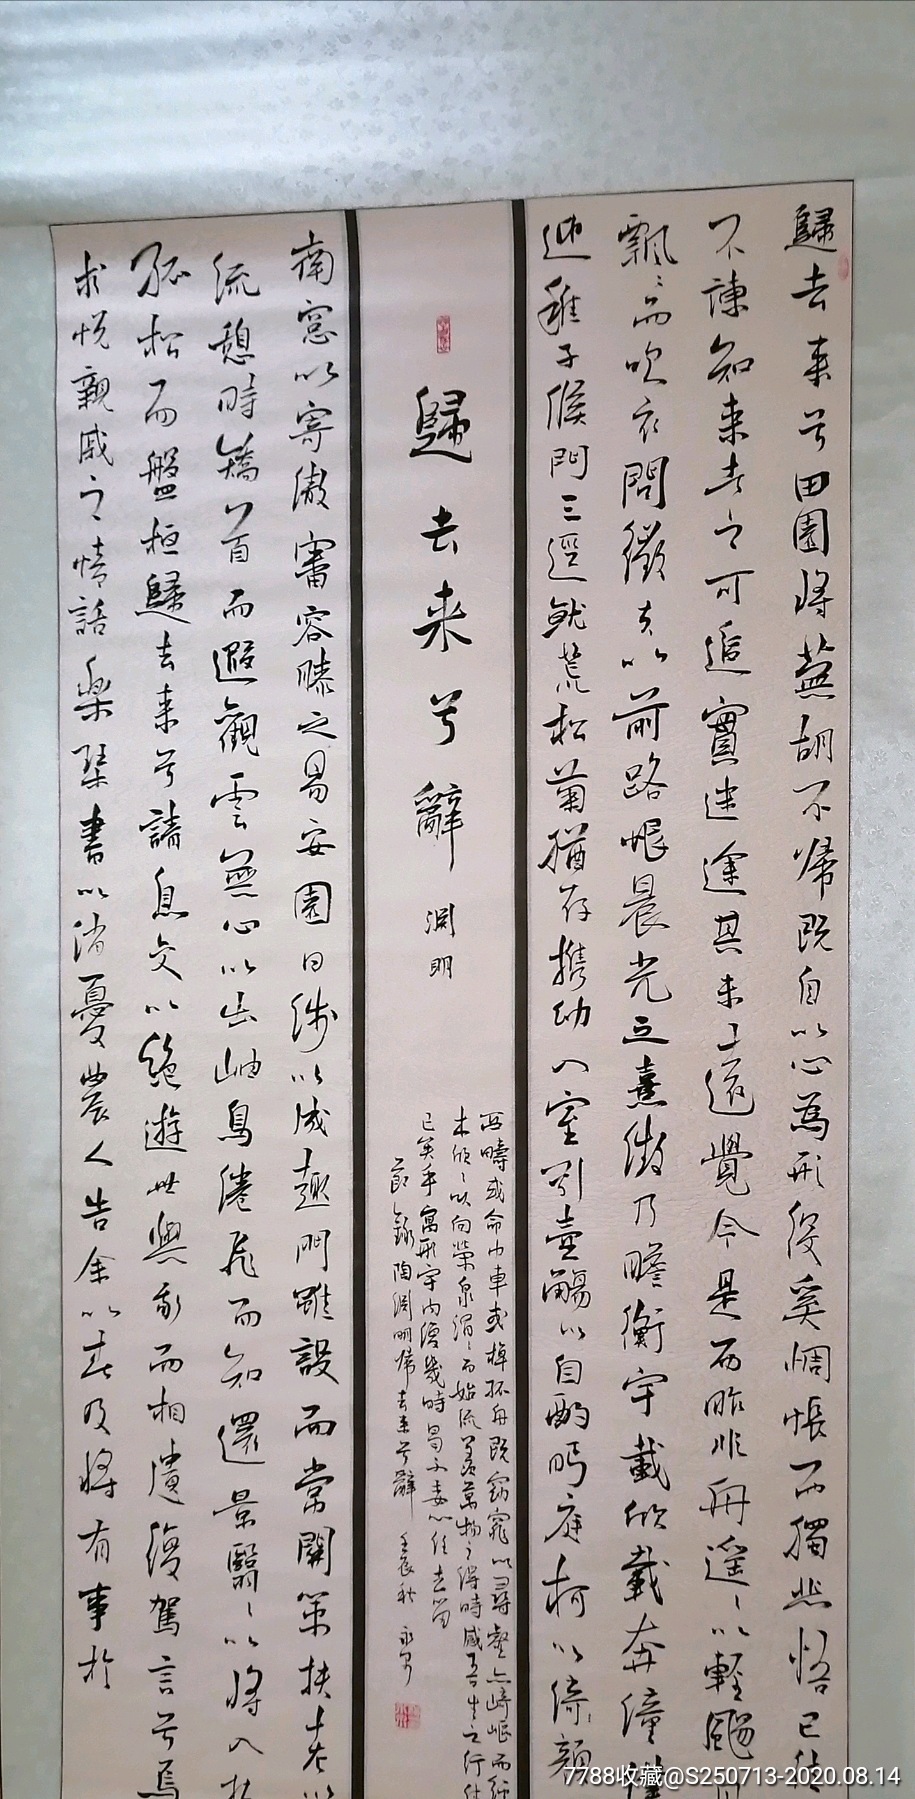 歸去来兮田園将蕪胡不帰既自以心為形役奚惆悵而獨悲悟已往
不諫知来者之可追實迷途其未遠覺今是而昨非舟遥〻以輕颺風
飄〻而吹衣問徵夫以前路恨晨光之熹微乃瞻衡宇載欣載奔僮僕
迎稚子候門三逕就荒松菊猶存携幼入室引壺觴以自酌眄庭柯以倚顏
歸去来兮辭 淵明
西疇或命巾車或棹孤舟既窈窕以尋壑亦崎嶇而經
木欣〻以向榮泉涓〻而始流羡萬物之得時感吾生之行休
已矣乎寓形宇内復幾時曷不委心任去留
節錄陶淵明帰去来兮辭 壬辰秋
南窓以寄傲審容膝之易安園日涉以成趣門雖設而常關策扶老以
流憩時矯首而遐觀雲無心以出岫鳥倦飛而知還景翳〻以將入撫
孤松而盤桓歸去来兮請息交以絶遊世與我而相遺復駕言兮焉
求悦親戚之情話樂琴書以消憂農人告余以春及将有事於
7788收藏@S250713-2020.08.14